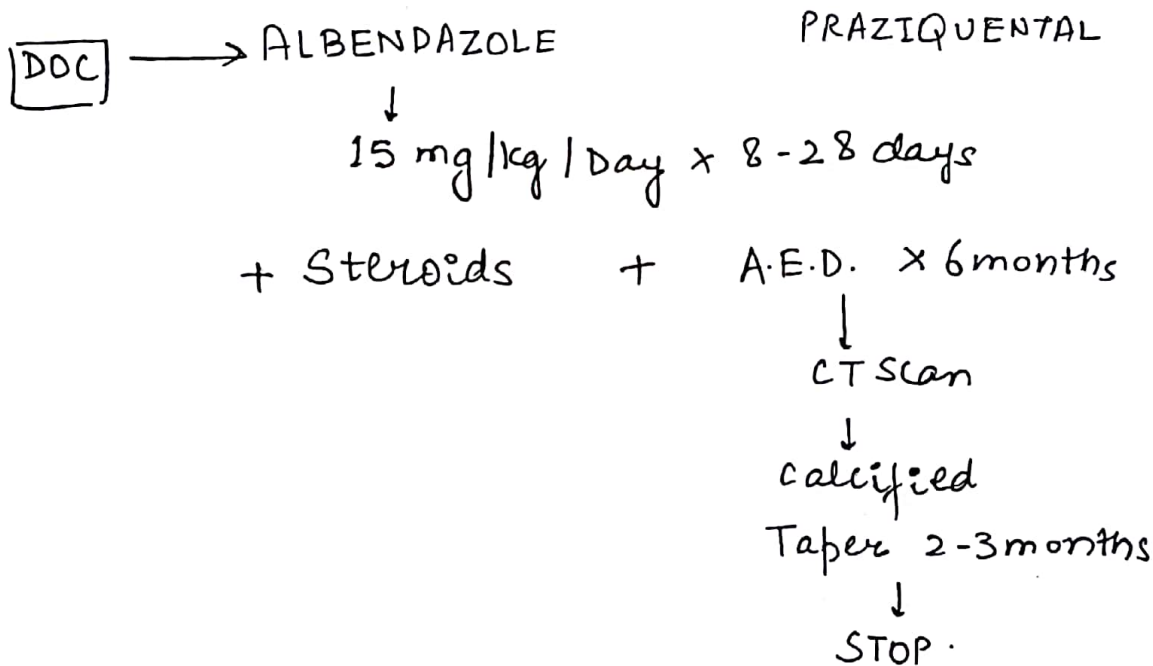 DOC → ALBENDAZOLE PRAZIQUENTAL
↓
15 mg/kg/Day × 8-28 days
+ Steroids + A.E.D. × 6 months
↓
CT Scan
↓
Calcified
Taper 2-3 months
↓
STOP.